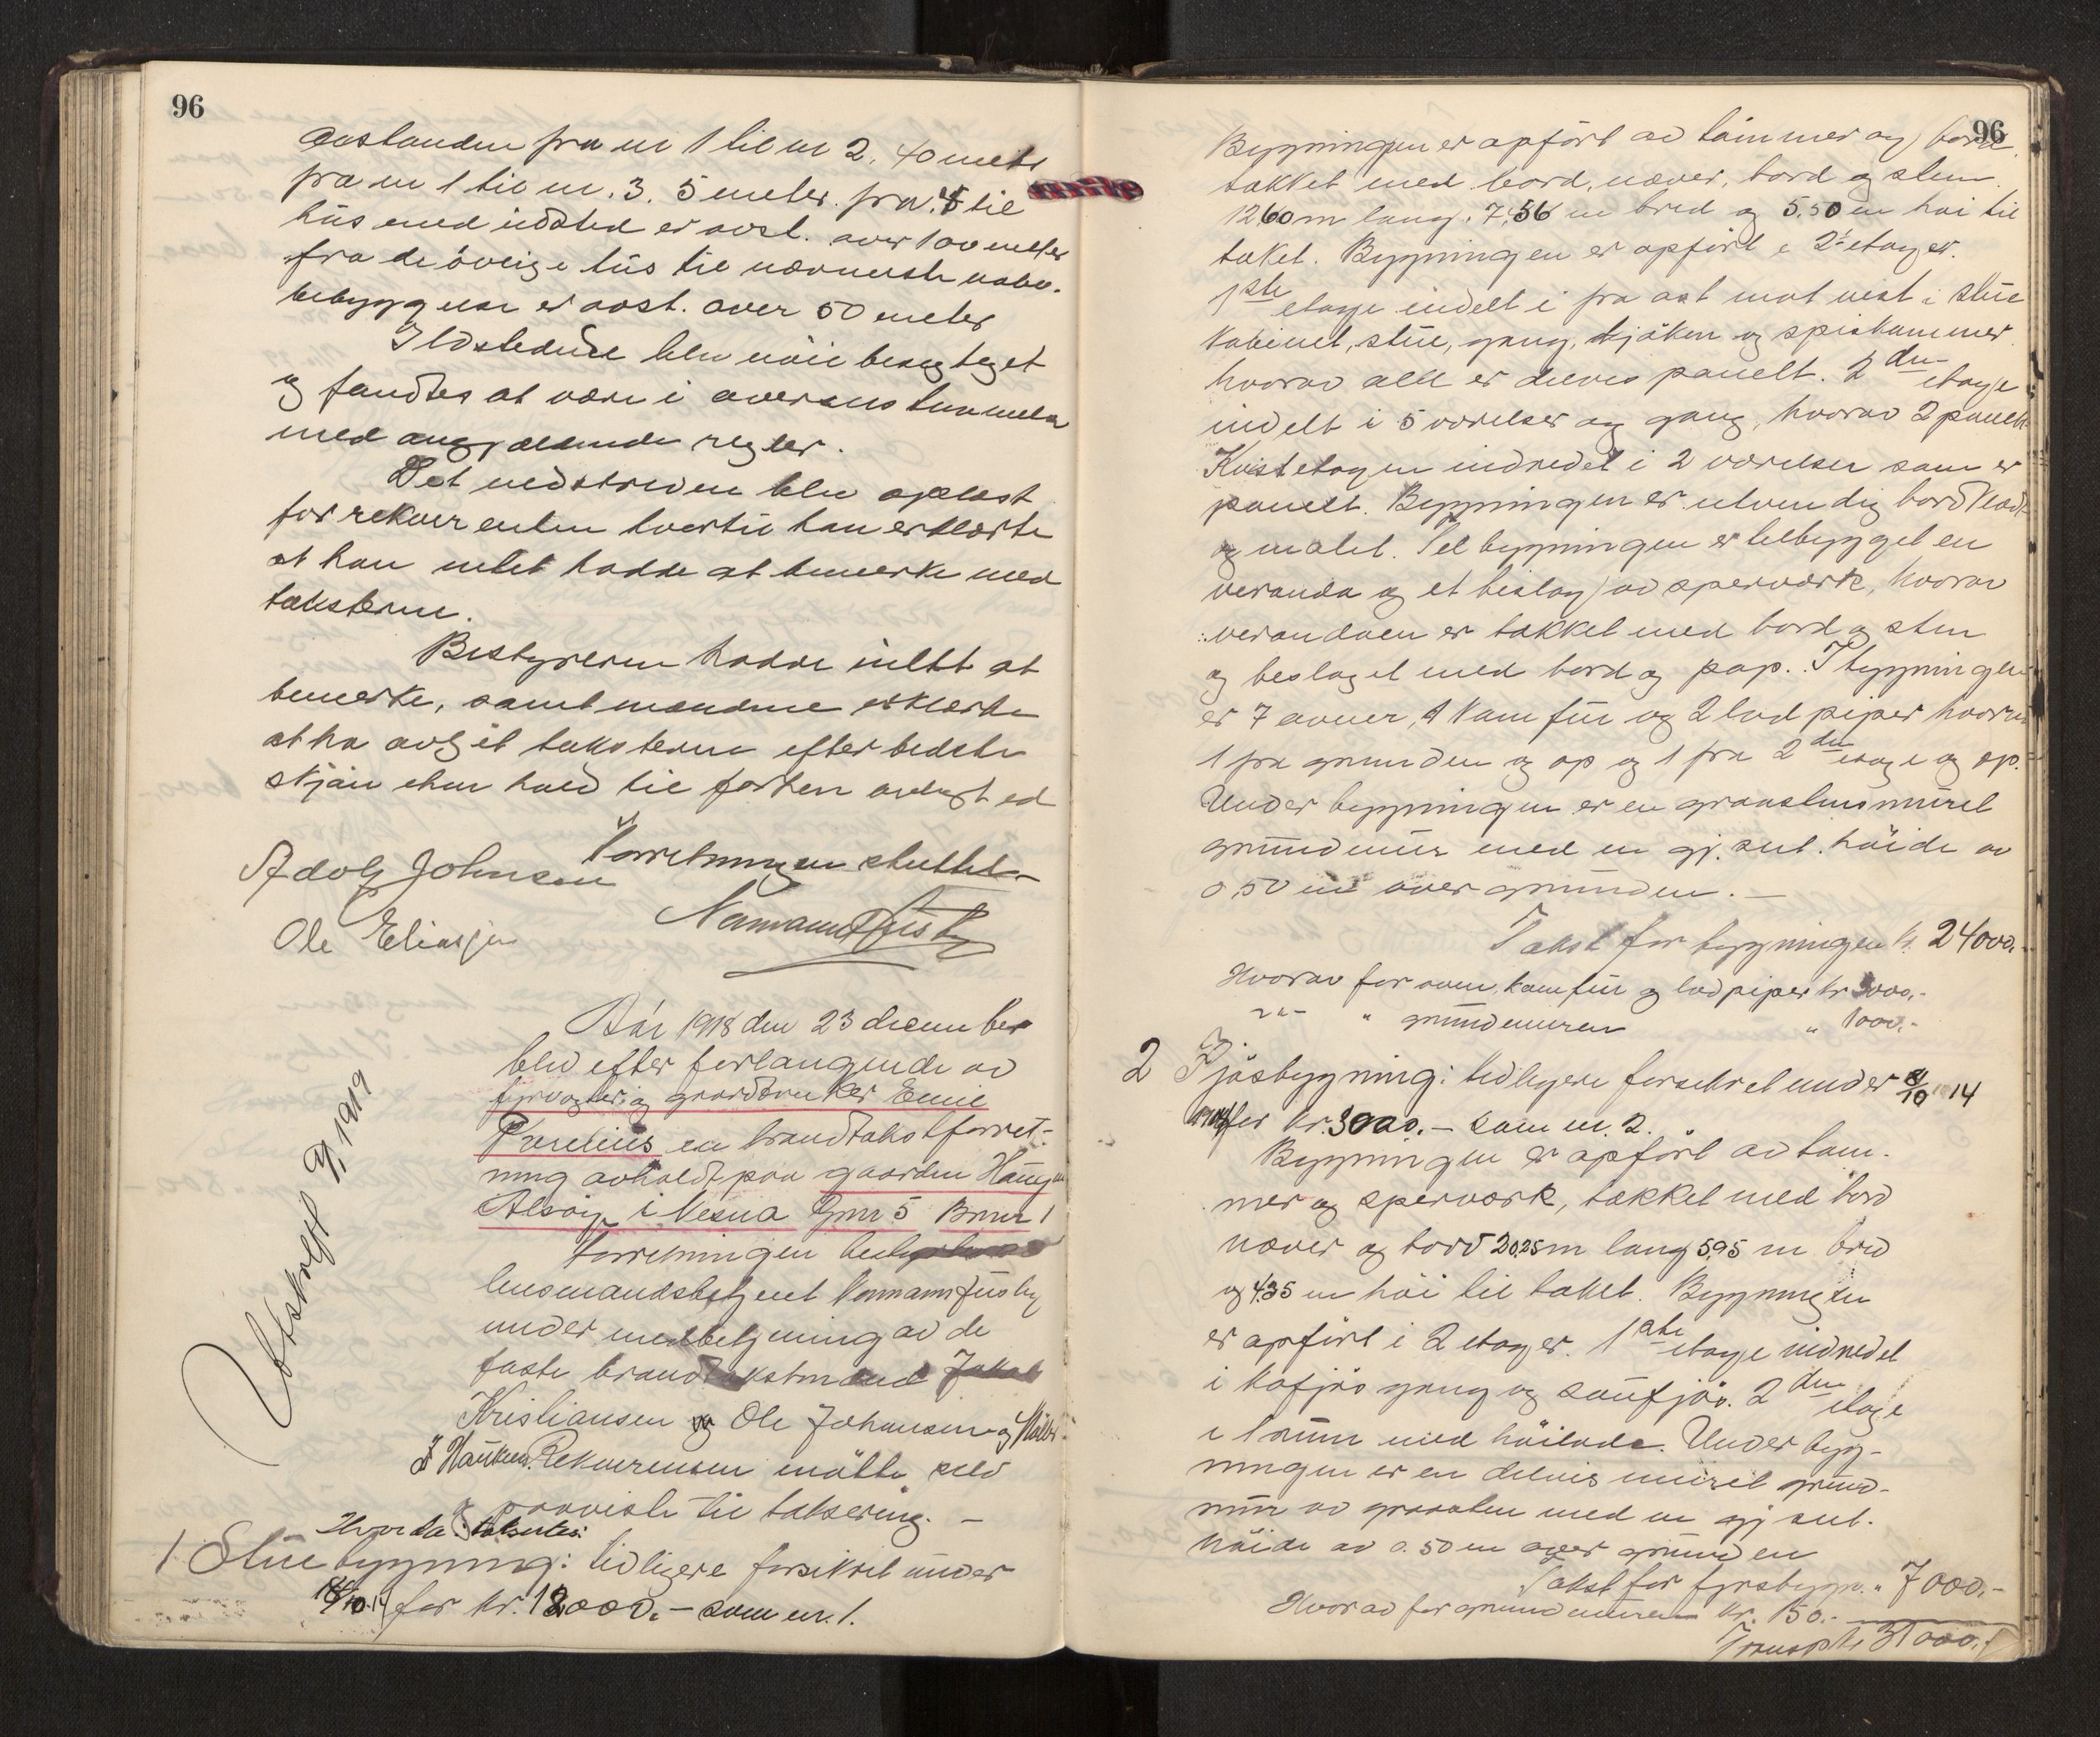 96
Avstanden fra nr 1 til nr 2. 40 meter
fra nr 1 til nr. 3. 5 meter. fra 4 til
hus med ildsted er avst. over 100 meter
fra de övrige hus til nærmeste nabo-
bebyggelse er avst. over 50 meter
Ildstedene blev nöie besigtiget
og fandtes at være i overensstemmelse
med angjældende regler.
Det nedskrevne blev oplæst
for rekvirenten hvortil han erklærte
at han intet hadde at bemerke med
taksterne.
Bestyreren hadde intet at
bemerke, samt mændene erklærte
at ha avgit taksterne efter bedste
skjön i hen hold til forhen avlagt ed
Forretningen sluttet
Adolf Johnsen
Ole Eliassen
Normann Husby
Utskrift 1919
Aar 1918 den 23 december
blev efter forlangende av
fyrvogter og gaardbruker Emil
Parelius en brandtakstforret-
ning avholdt paa gaarden Haugen
Alsöy i Nesna Gnr 5 Bnr 1
Forretningen
lensmandsbetjent Normann Husby
under medbetjening av de
faste brandtakstmænd Jakob
Kristiansen og Ole Johansen og
Rekvirenten mötte selv
og paaviste til taksering. –
Hvorda taksertes:
1 Stuebygning: tidligere forsikret under
for kr. 18000.– som nr. 1.
96
Bygningen er opfört av tömmer og bord
takket med bord, næver, bord og sten.
12,60 m lang, 7,56 m bred og 5.50 m höi til
taket. Bygningen er opfört i 2½ etager.
1ste etage indelt i fra öst mot vest i stue
kabinet, stue, gang, kjöken og spiskammer
hvorav alle er delvis panelt. 2den etage
indelt i 5 værelser og gang, hvorav 2 panelt
Kvistetagen indredet i 2 værelser som er
panelt. Bygningen er utvendig bordklædt
og malet. Til bygningen er tilbygget en
veranda og et bislag av sperværk, hvorav
verandaen er takket med bord og sten
og beslaget med bord og pap. I bygningen
er 7 ovner, 1 kamfur og 2 lodpiper hvorav
1 fra grunden og op og 1 fra 2den etage og op.
Under bygningen er en graastensmuret
grundmur med en gj. snt. höide av
0,50 m over grunden. –
Takst for bygningen kr. 24000.-
Hvorav for ovne, kamfur og lodpiper kr 3000,-
-"- " grundmuren " 1000,-
2 Fjösbygning: tidligere forsikret under 8/10 1914
for kr. 3000.– som nr. 2.
Bygningen er opfört av töm-
mer og sperværk, takket med bord
næver og torv 20,25 m lang 5,95 m bred
og 4,35 m höi til taket. Bygningen
er opfört i 2 etager. 1ste etage indredet
i kofjös gang og saufjös. 2den etage
i 1 rum med höilade. Under byg-
ningen er en delvis muret grund-
mur av graasten med en gj snt.
höide av 0.50 m over grunden
Takst for fjösbygn. " 7000.-
Hvorav for grundmuren kr. 150.-
Transpt. 31000.-